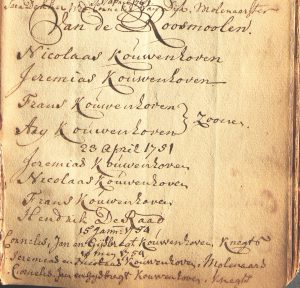 Dijk, Molenaerster
Van de Roosmoolen.
Nicolaas Kouwenhoven
Jeremias Kouwenhoven
Frans Kouwenhoven
Ary Kouwenhoven } Zoonen.
23 April 1751
Jeremias Kouwenhoven
Nicolaas Kouwenhoven
Frans Kouwenhoven
Hendrik De Raad
1754
Cornelis, Jan en Gijsbregt Kouwenhoven, Knegts
1754
Jeremias en Nicolaas Kouwenhoven, Molenaars
Cornelis, Jan en Gijsbregt Kouwenhoven, Knegts